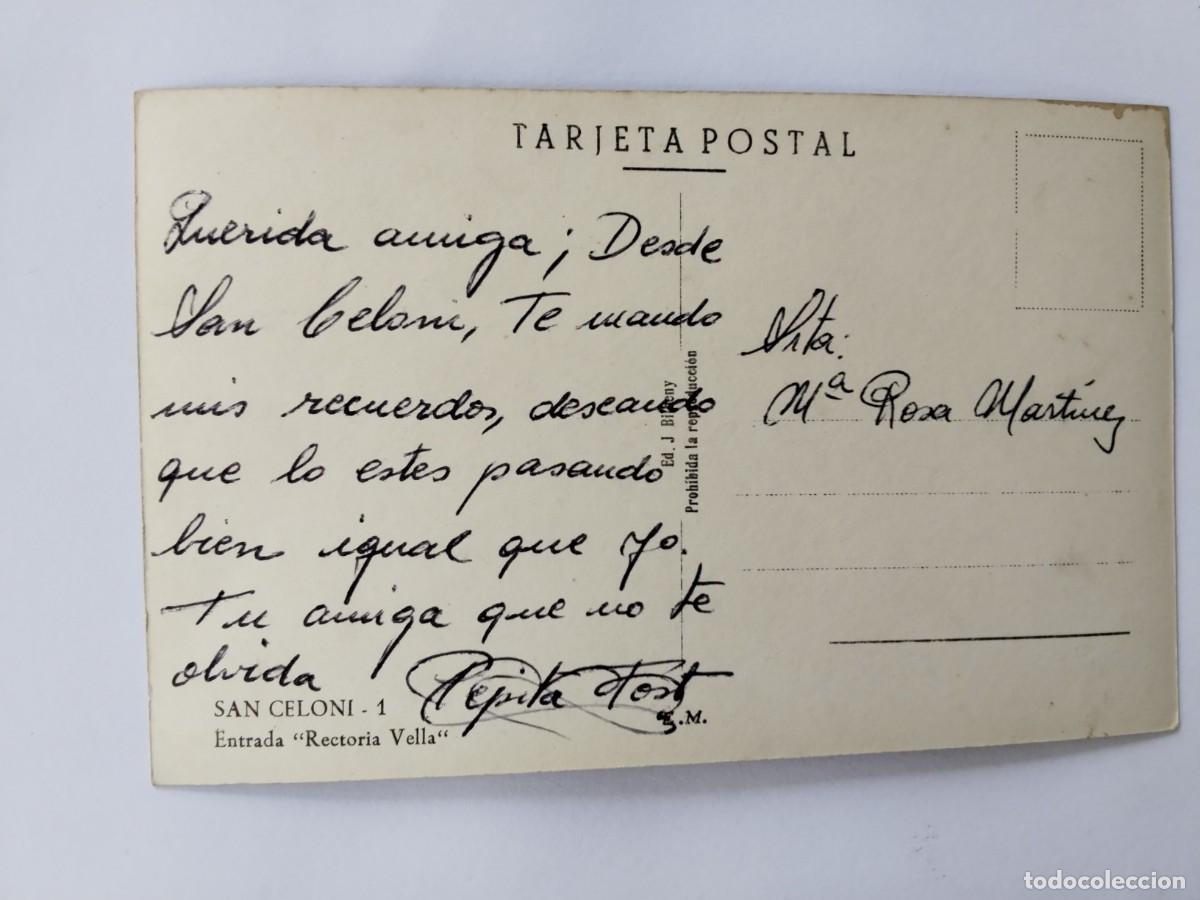 TARJETA POSTAL
Querida amiga; Desde
San Celoni, Te mando
mis recuerdos, deseando
que lo estes pasando
bien igual que yo.
Tu amiga que no te
olvida Pepita Tost
Srta:
Mª Rosa Martínez
Ed. J
Prohibida la reproducción
SAN CELONI - 1
Entrada "Rectoria Vella"
F.M.
todocoleccion